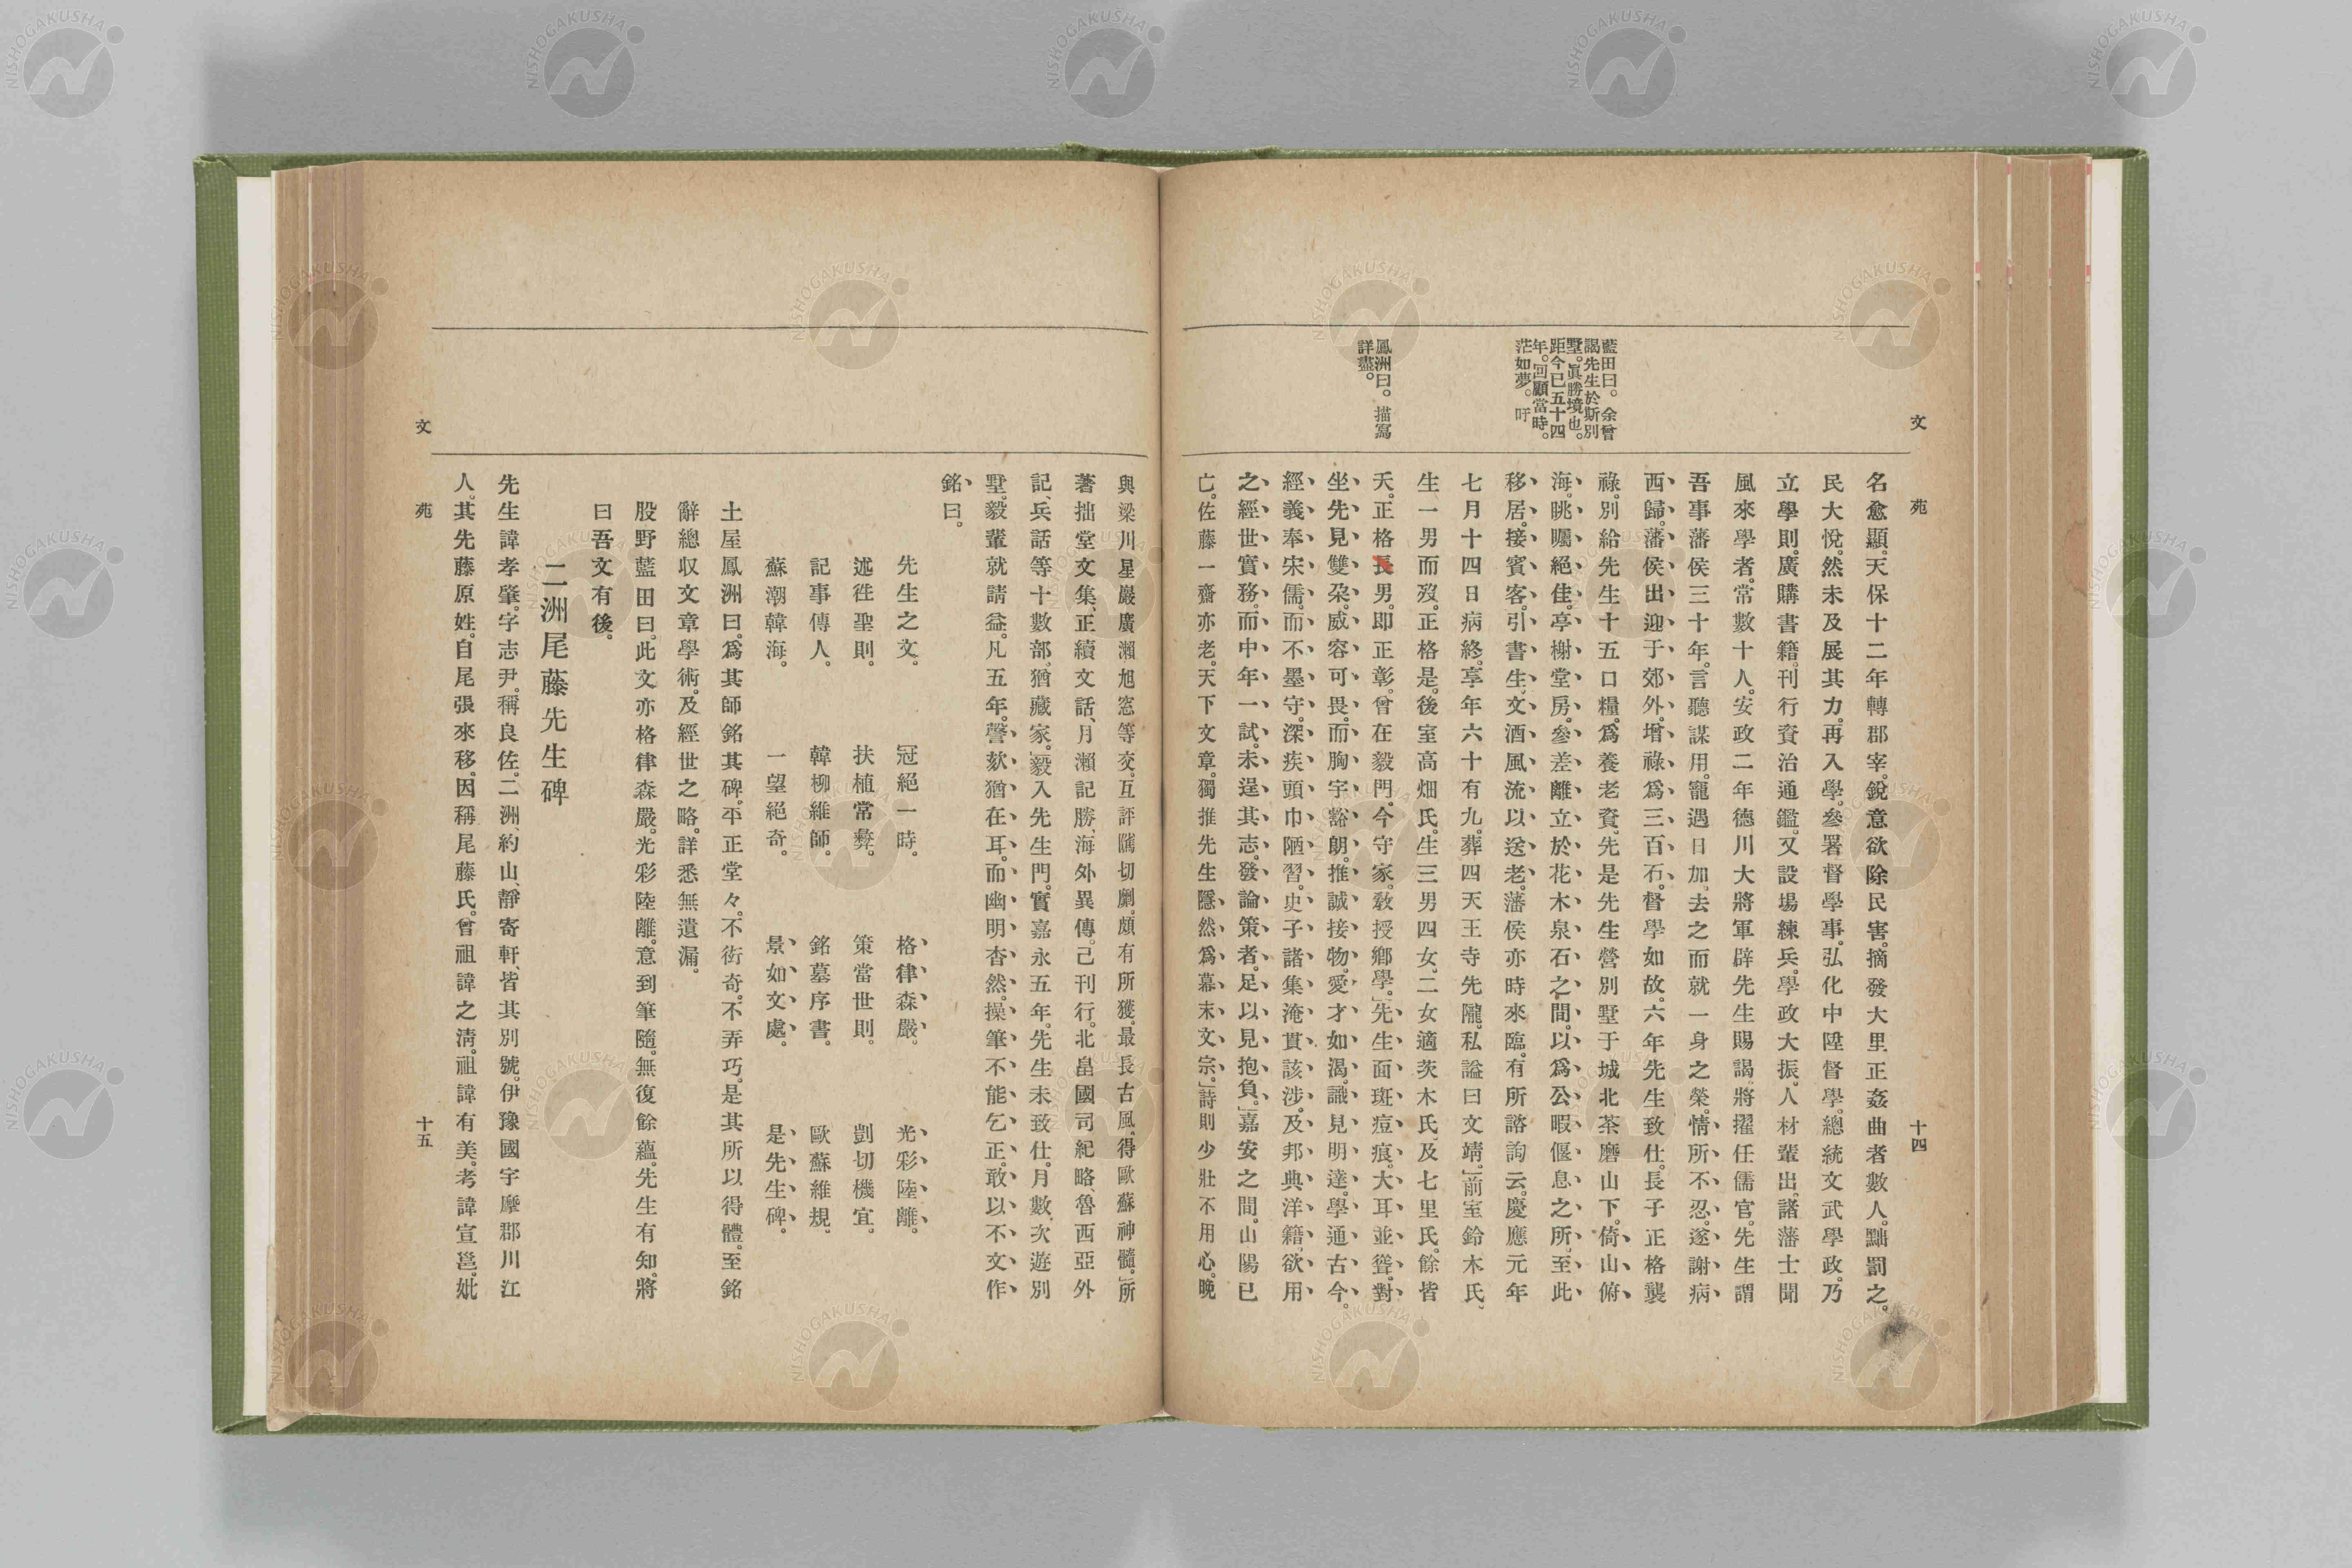 文苑
十四
藍田曰。余曾
謁先生於斯別
墅。眞勝境也。
距今已五十四
年。回顧當時。
茫如夢。吁
鳳洲曰。描寫
詳盡。
名愈顯。天保十二年轉郡宰。銳意欲除民害。摘發大里正姦曲者數人。黜罰之。
民大悅。然未及展其力。再入學。參署督學事。弘化中陞督學。總統文武學政。乃
立學則。廣購書籍。刊行資治通鑑。又設場練兵。學政大振。人材輩出。諸藩士聞
風來學者。常數十人。安政二年德川大將軍辟先生賜謁。將擢任儒官。先生謂
吾事藩侯三十年。言聽謀用。寵遇日加。去之而就一身之榮。情所不忍。遂謝病
西歸。藩侯出迎于郊外。增祿爲三百石。督學如故。六年先生致仕。長子正格襲
祿。別給先生十五口糧。爲養老資。先是先生營別墅于城北茶磨山下。倚山俯
海。眺矚絕佳。亭榭堂房。參差離立於花木泉石之間。以爲公暇偃息之所。至此
移居。接賓客。引書生。文酒風流以送老。藩侯亦時來臨。有所諮詢云。慶應元年
七月十四日病終。享年六十有九。葬四天王寺先隴。私謚曰文靖。」前室鈴木氏、
生一男而歿。正格是。後室高畑氏。生三男四女。二女適茨木氏、及七里氏。餘皆
夭。正格長男。卽正彰。曾在毅門。今守家。敎授鄕學。」先生面斑痘痕。大耳並聳。對
坐先見雙朶。威容可畏。而胸宇豁朗。推誠接物。愛才如渴。識見明達。學通古今。
經義奉宋儒。而不墨守。深疾頭巾陋習。史子諸集淹貫該涉。及邦典洋籍。欲用
之經世實務。而中年一試。未逞其志。發論策者。足以見抱負。」嘉安之間。山陽已
亡。佐藤一齋亦老。天下文章。獨推先生隱然爲幕末文宗。」詩則少壯不用心。晚
與梁川星巖廣瀨旭窓等交。互評隲切劘。頗有所獲。最長古風。得歐蘇神髓。」所
著拙堂文集、正續文話、月瀨記勝、海外異傳。己刊行。北畠國司紀略、魯西亞外
記、兵話等十數部、猶藏家。」毅入先生門。實嘉永五年。先生未致仕。月數次遊別
墅。毅輩就請益。凡五年。謦欬猶在耳。而幽明杳然。操筆不能乞正。敢以不文作
銘曰。
先生之文。 冠絕一時。 格律森嚴。 光彩陸離。
述徃聖則。 扶植常彜。 策當世則。 剴切機宜。
記事傳人。 韓柳維師。 銘墓序書。 歐蘇維規。
蘇潮韓海。 一望絕奇。 景如文處。 是先生碑。
土屋鳳洲曰。爲其師銘其碑。平正堂々。不衒奇。不弄巧。是其所以得體。至銘
辭總収文章學術。及經世之略。詳悉無遺漏。
股野藍田曰。此文亦格律森嚴。光彩陸離。意到筆隨。無復餘蘊。先生有知。將
曰吾文有後。
二洲尾藤先生碑
先生諱孝肇。字志尹。稱良佐。二洲、約山、靜寄軒、皆其別號。伊豫國宇摩郡川江
人。其先藤原姓。自尾張來移。因稱尾藤氏。曾祖諱之淸。祖諱有美。考諱宣邕。妣
文苑
十五
NISHOGAKUSHA